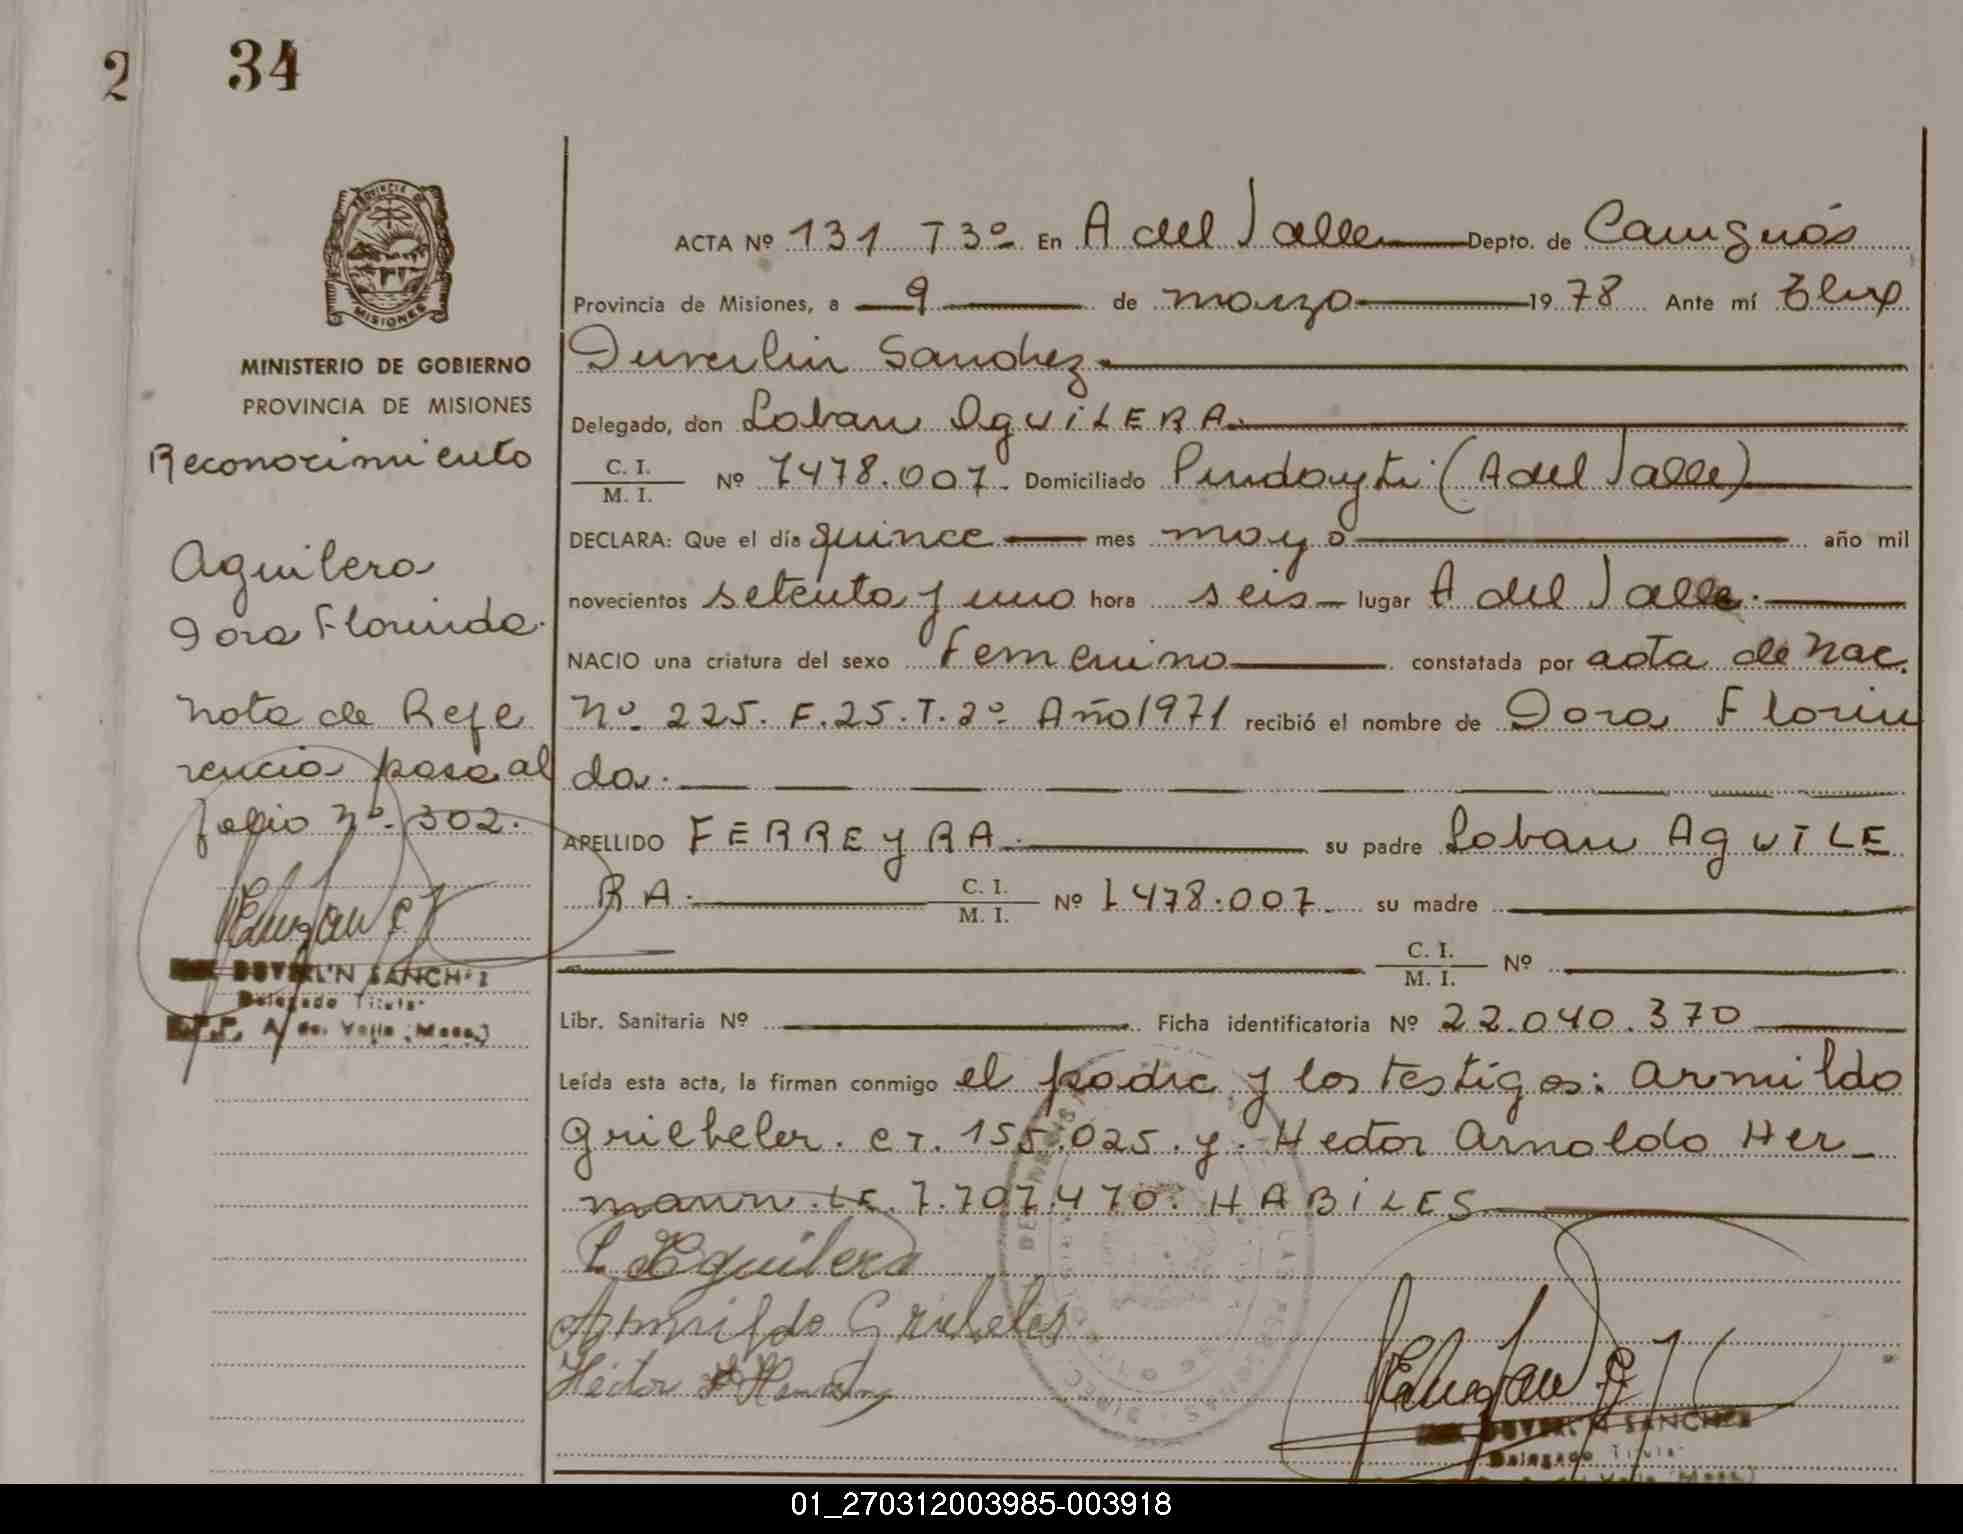 2 34
PROVINCIA DE
MISIONES
MINISTERIO DE GOBIERNO
PROVINCIA DE MISIONES
Reconocimiento
Aguilera
Dora Florinda.
Nota de Refe
rencia pasa al
folio Nº. 302.
SANCHEZ
Delegado Titular
ACTA Nº 131 T3º En A del Valle Depto. de Cainguás
Provincia de Misiones, a 9 de marzo 1978 Ante mí
Duverlin Sanchez
Delegado, don Loban AGUILERA.
C. I.
M. I. Nº 7478.007. Domiciliado Pindayti (A del Valle)
DECLARA: Que el día quince mes mayo año mil
novecientos setenta y uno hora seis lugar A del Valle.
NACIO una criatura del sexo Femenino constatada por acta de Nac.
Nº 225. F. 25. T. 2º. Año 1971 recibió el nombre de Dora Florin
da.
APELLIDO FERREyRA. su padre Loban AGUILE
RA. C. I.
M. I. Nº 1478.007. su madre
C. I.
M. I. Nº
Libr. Sanitaria Nº Ficha identificatoria Nº 22.040.370
Leída esta acta, la firman conmigo el padre y los testigos: Armildo
Griebeler. CI. 155.025. y. Hector Arnoldo Her-
mann. LE. 7.707.470. HABILES
L Aguilera
Armildo Griebeler
Héctor A Hermann
DUVERLIN SANCHEZ
Delegado Titular
01_270312003985-003918